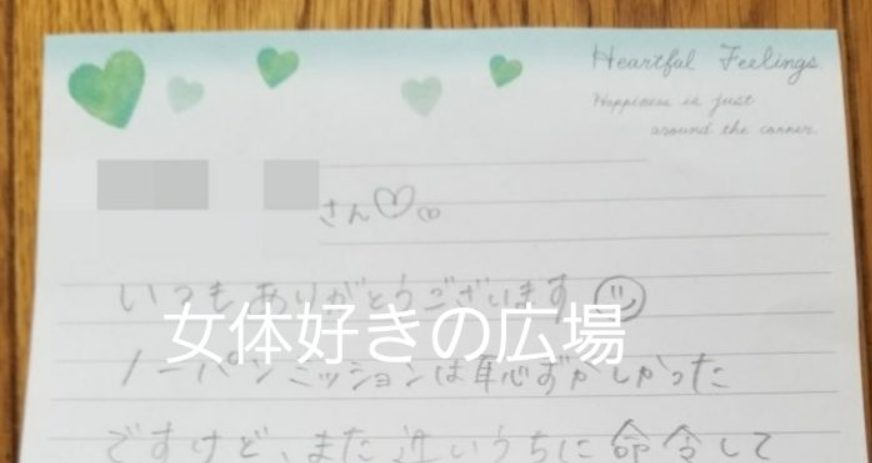 Heartful Feelings.
Happiness is just
around the corner.
さん♡∞
いつもありがとうございます
女体好きの広場
ノーパンミッションは恥ずかしかった
ですけど、また近いうちに命令して